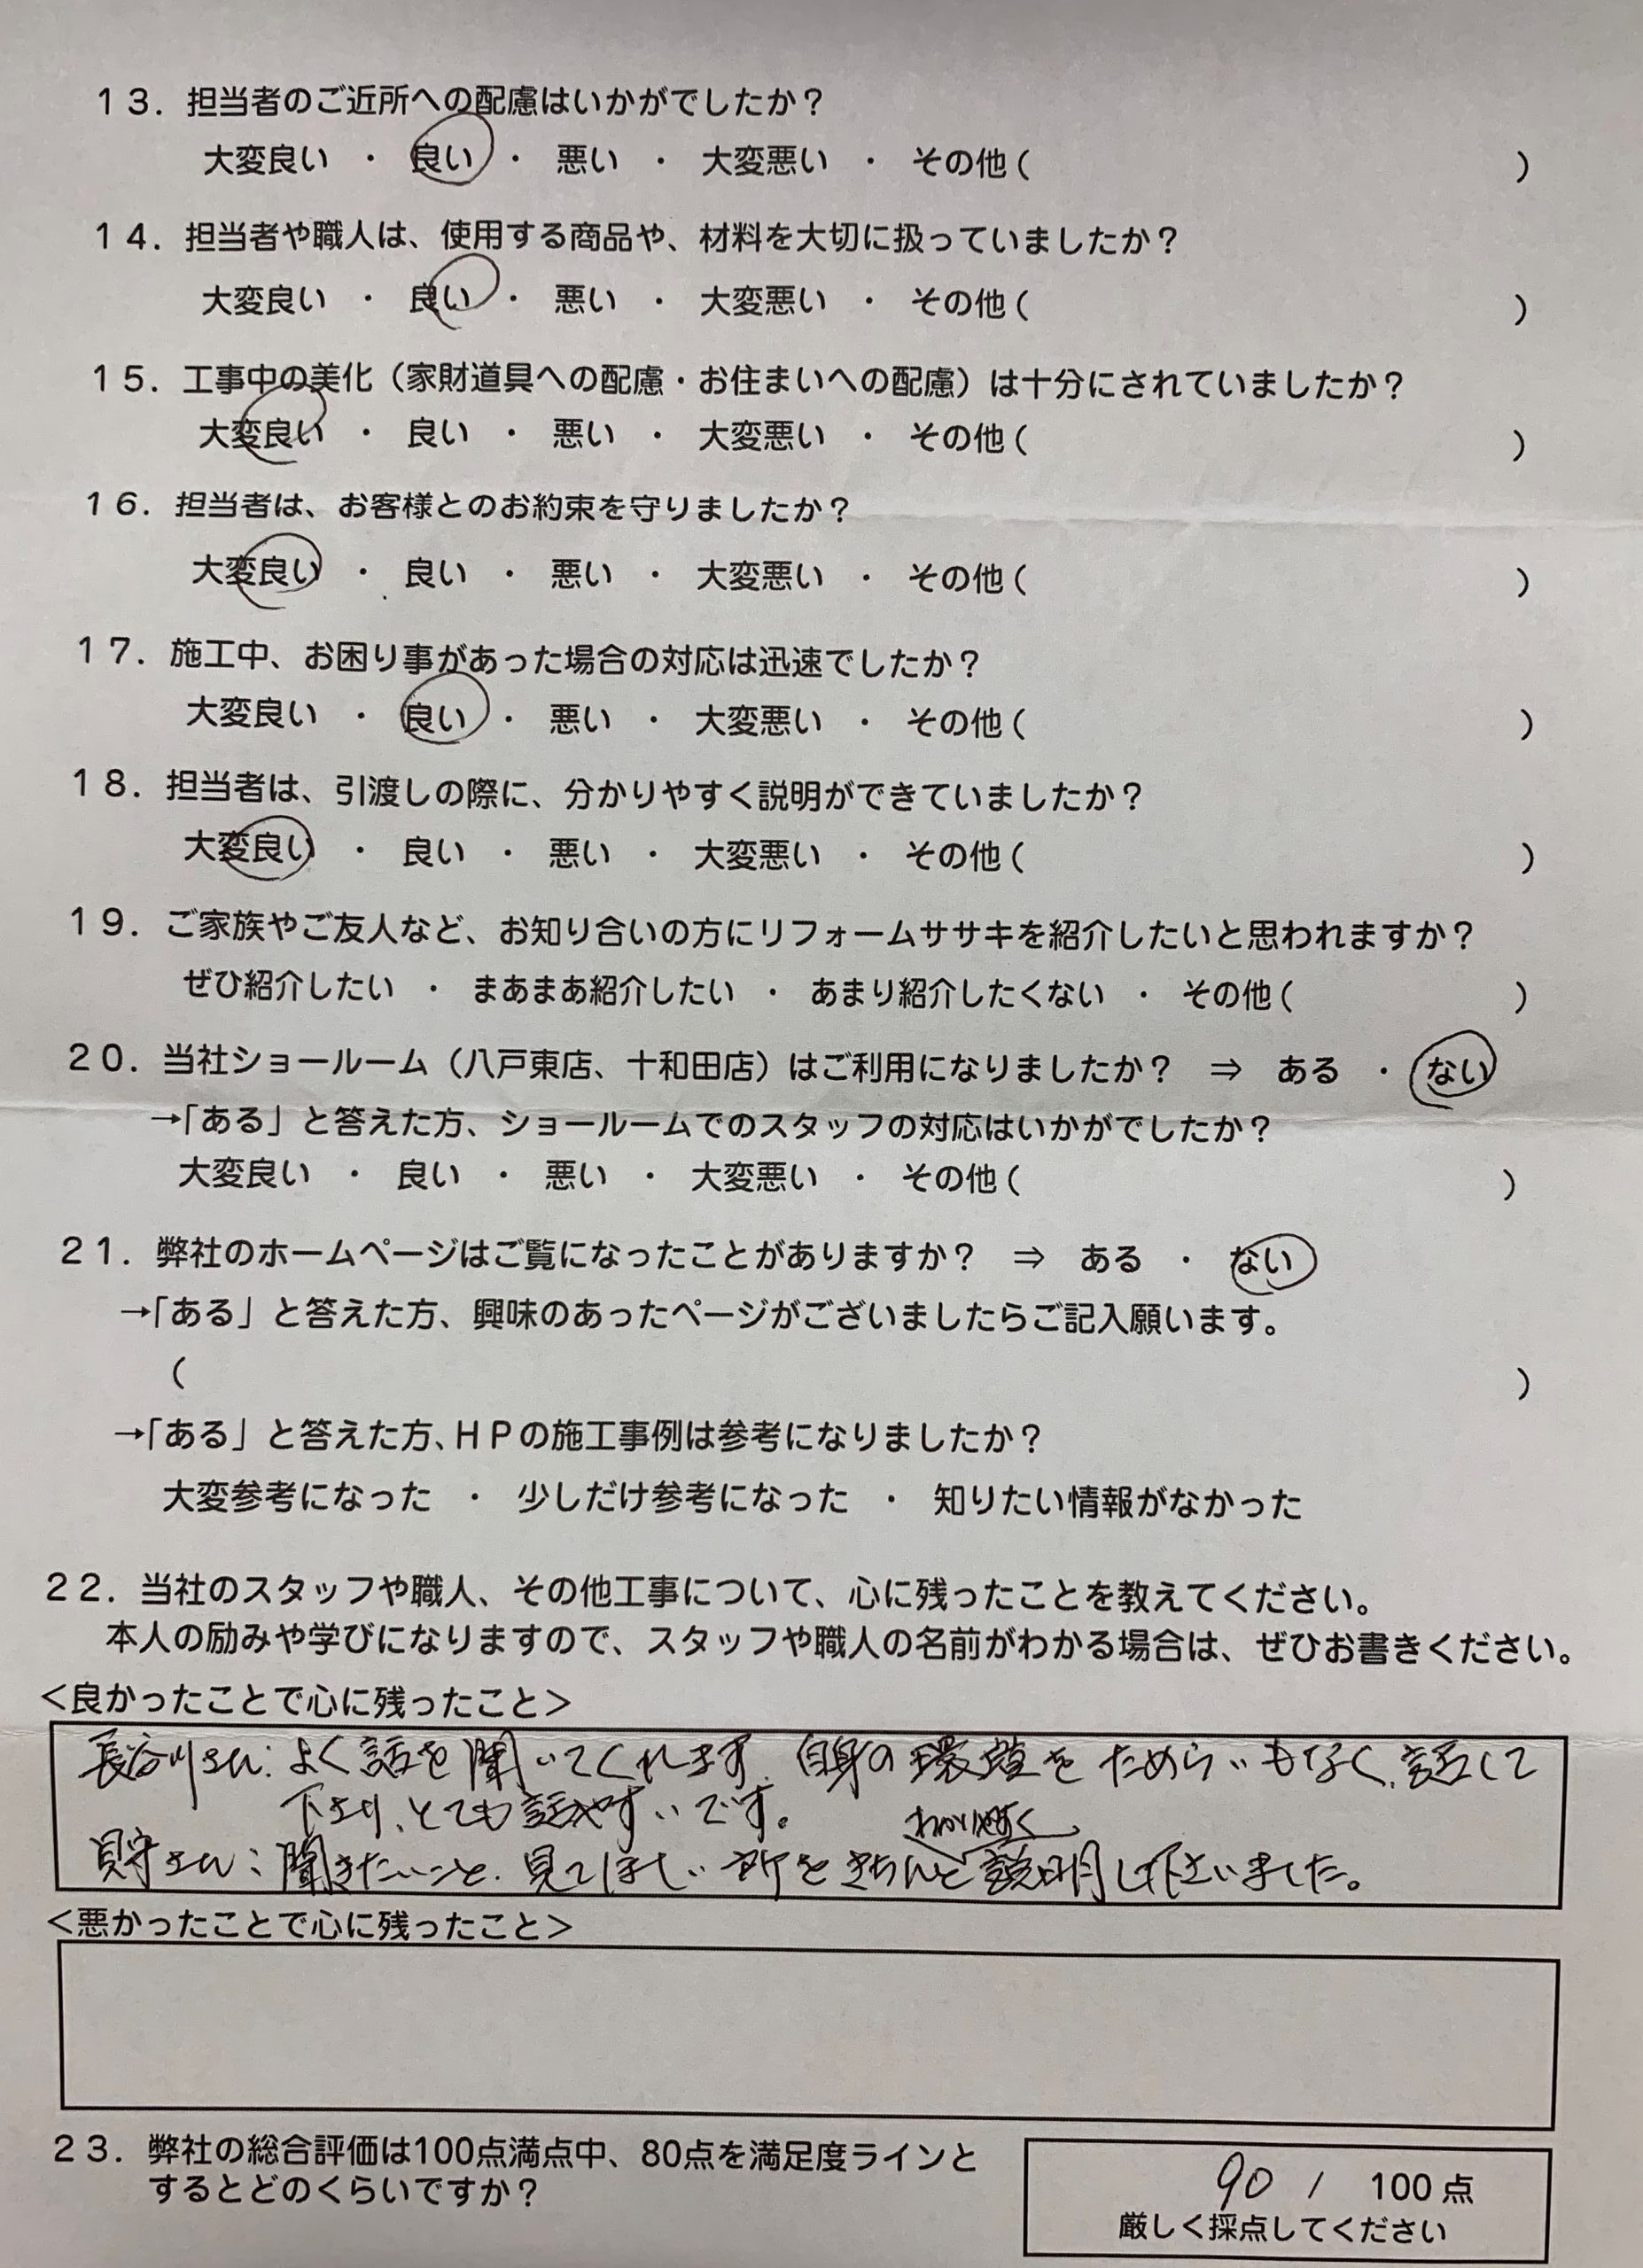 １３．担当者のご近所への配慮はいかがでしたか？
大変良い ・ 良い ・ 悪い ・ 大変悪い ・ その他（ ）
１４．担当者や職人は、使用する商品や、材料を大切に扱っていましたか？
大変良い ・ 良い ・ 悪い ・ 大変悪い ・ その他（ ）
１５．工事中の美化（家財道具への配慮・お住まいへの配慮）は十分にされていましたか？
大変良い ・ 良い ・ 悪い ・ 大変悪い ・ その他（ ）
１６．担当者は、お客様とのお約束を守りましたか？
大変良い ・ 良い ・ 悪い ・ 大変悪い ・ その他（ ）
１７．施工中、お困り事があった場合の対応は迅速でしたか？
大変良い ・ 良い ・ 悪い ・ 大変悪い ・ その他（ ）
１８．担当者は、引渡しの際に、分かりやすく説明ができていましたか？
大変良い ・ 良い ・ 悪い ・ 大変悪い ・ その他（ ）
１９．ご家族やご友人など、お知り合いの方にリフォームササキを紹介したいと思われますか？
ぜひ紹介したい ・ まあまあ紹介したい ・ あまり紹介したくない ・ その他（ ）
２０．当社ショールーム（八戸東店、十和田店）はご利用になりましたか？ ⇒ ある ・ ない
→「ある」と答えた方、ショールームでのスタッフの対応はいかがでしたか？
大変良い ・ 良い ・ 悪い ・ 大変悪い ・ その他（ ）
２１．弊社のホームページはご覧になったことがありますか？ ⇒ ある ・ ない
→「ある」と答えた方、興味のあったページがございましたらご記入願います。
（ ）
→「ある」と答えた方、ＨＰの施工事例は参考になりましたか？
大変参考になった ・ 少しだけ参考になった ・ 知りたい情報がなかった
２２．当社のスタッフや職人、その他工事について、心に残ったことを教えてください。
本人の励みや学びになりますので、スタッフや職人の名前がわかる場合は、ぜひお書きください。
＜良かったことで心に残ったこと＞
長谷川さん：よく話を聞いてくれます。自身の環境をためらいもなく、話して
下さり、とても話やすいです。
わかりやすく
貝守さん：聞きたいこと、見てほしい所をきちんと説明し下さいました。
＜悪かったことで心に残ったこと＞
２３．弊社の総合評価は100点満点中、80点を満足度ラインと
するとどのくらいですか？
90 / 100点
厳しく採点してください